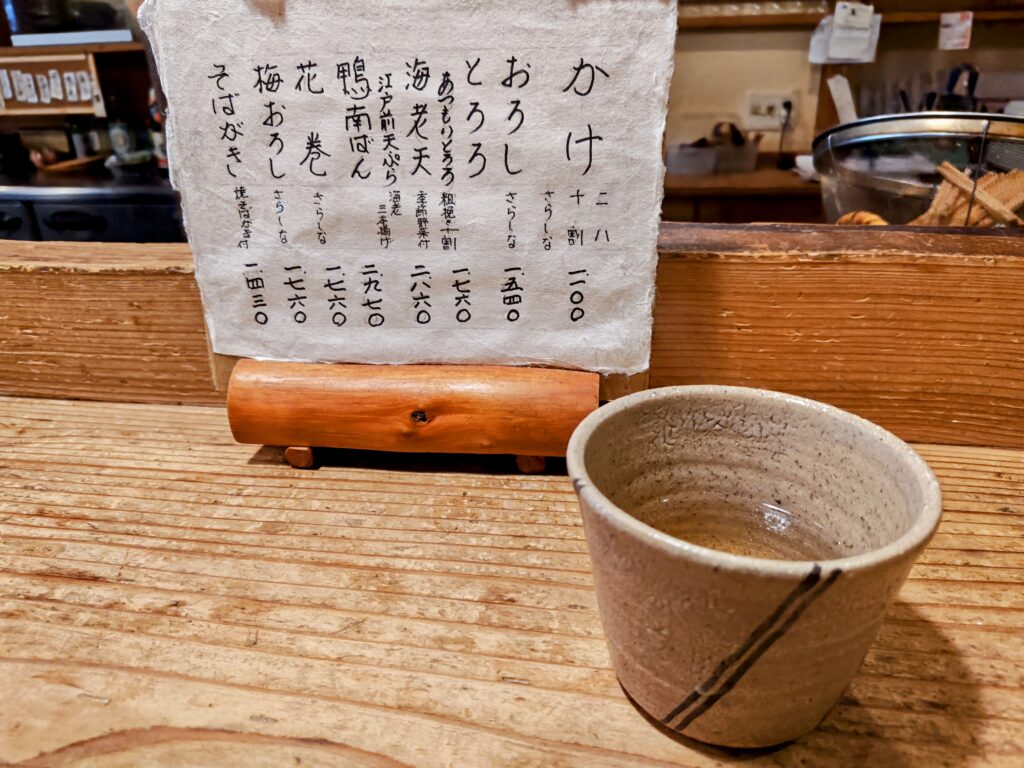 かけ 二八
十割
さらしな 一、一〇〇
おろし さらしな 一、五四〇
とろろ
あつもりとろろ 粗挽き十割 一、七六〇
海老天 季節野菜付 二、八六〇
江戸前天ぷら 海老
二本揚げ
鴨南ばん 二、九七〇
花巻 さらしな 一、七六〇
梅おろし さらしな 一、七六〇
そばがき 焼そばがき付 一、四三〇